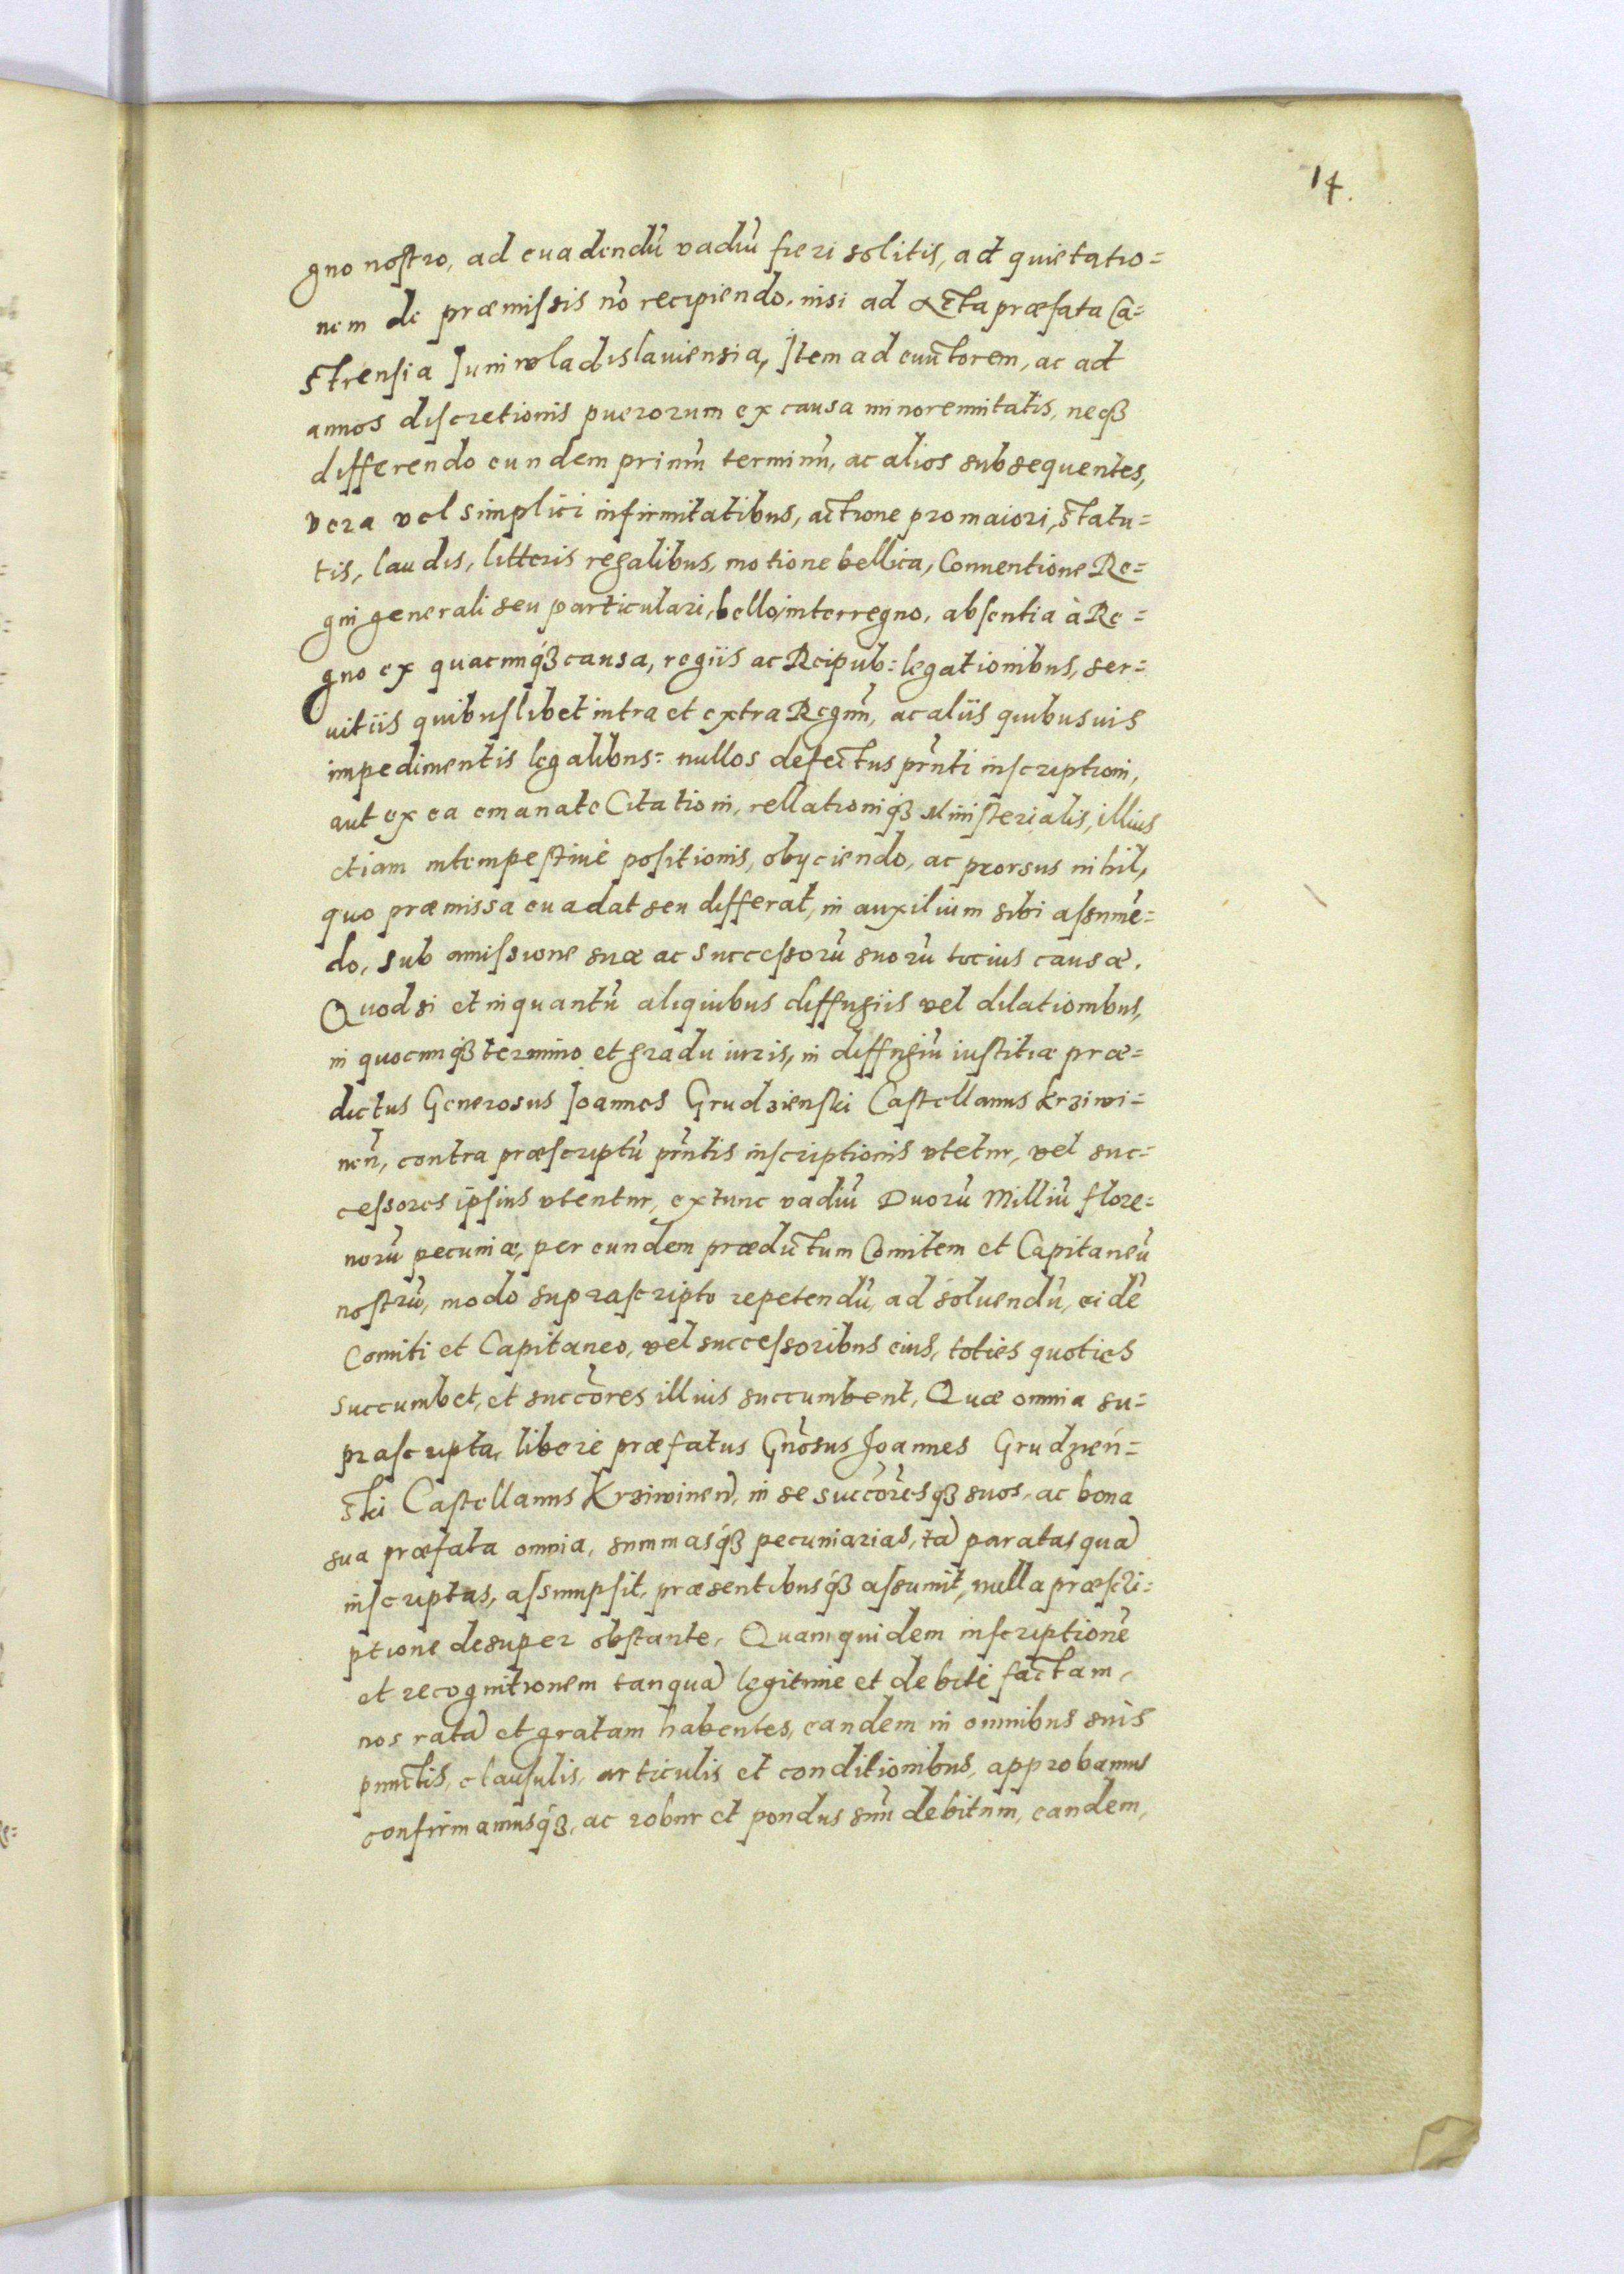 14.
gno nostro, ad euadendũ vadiũ fieri solitis, ad quietatio=
nem de præmissis nõ recipiendo. nisi ad Acta præfata Ca=
strensia Juniwladislauiensia, Item ad euictorem, ac ad
annos discretionis puerorum ex causa minorennitatis, neqꝫ
differendo eundem primũ terminũ, ac alios subsequentes,
vera vel simplici infirmitatibus, actione pro maiori, statu=
tis, laudis, litteris regalibus, motione bellica, Conuentione Re=
gni generali seu particulari, bello, interregno, absentia à Re=
gno ex quacunqꝫ causa, regiis ac Reipub: legationibus, ser=
uitiis quibuslibet intra et extra Regnũ, ac aliis quibusuis
impedimentis legalibus: nullos defectus pñti inscriptioni,
aut ex ea emanate Citationi, rellationiqꝫ Ministerialis, illius
etiam intempestiuè positionis, obijciendo, ac prorsus nihil,
quo præmissa euadat seu differat, in auxilium sibi assumẽ=
do, sub amissione suæ ac successorũ suorũ tocius causæ.
Quodsi et inquantũ aliquibus diffugiis vel dilationibus,
in quocunqꝫ termino et gradu iuris, in diffugiũ iustitiæ præ=
dictus Generosus Joannes Grudzienski Castellanus Krziwi=
neñ, contra præscriptũ pñtis inscriptionis vtetur, vel suc=
cessores ipsius vtentur, extunc vadiũ Duorũ Milliũ flore=
norũ pecuniæ, per eundem prædictum Comitem et Capitaneũ
nostrũ, modo suprascripto repetendũ, ad soluendũ, eidẽ
Comiti et Capitaneo, vel successoribus eius, toties quoties
succumbet, et succõres illius succumbent, Quæ omnia su=
prascripta, liberè præfatus Gnõsus Joannes Grudzień=
ski Castellanus Krziwineñ, in se succõresqꝫ suos, ac bona
sua præfata omnia, summasqꝫ pecuniarias, tã paratas quã
inscriptas, assumpsit, præsentibusqꝫ assumit, nulla præscri=
ptione desuper obstante, Quam quidem inscriptionẽ
et recognitionem tanquã legitimè et debitè factam,
nos ratã et gratam habentes, eandem in omnibus suis
punctis, clausulis, articulis et conditionibus, approbamus
confirmamusqꝫ, ac robur et pondus suũ debitum, eandem,